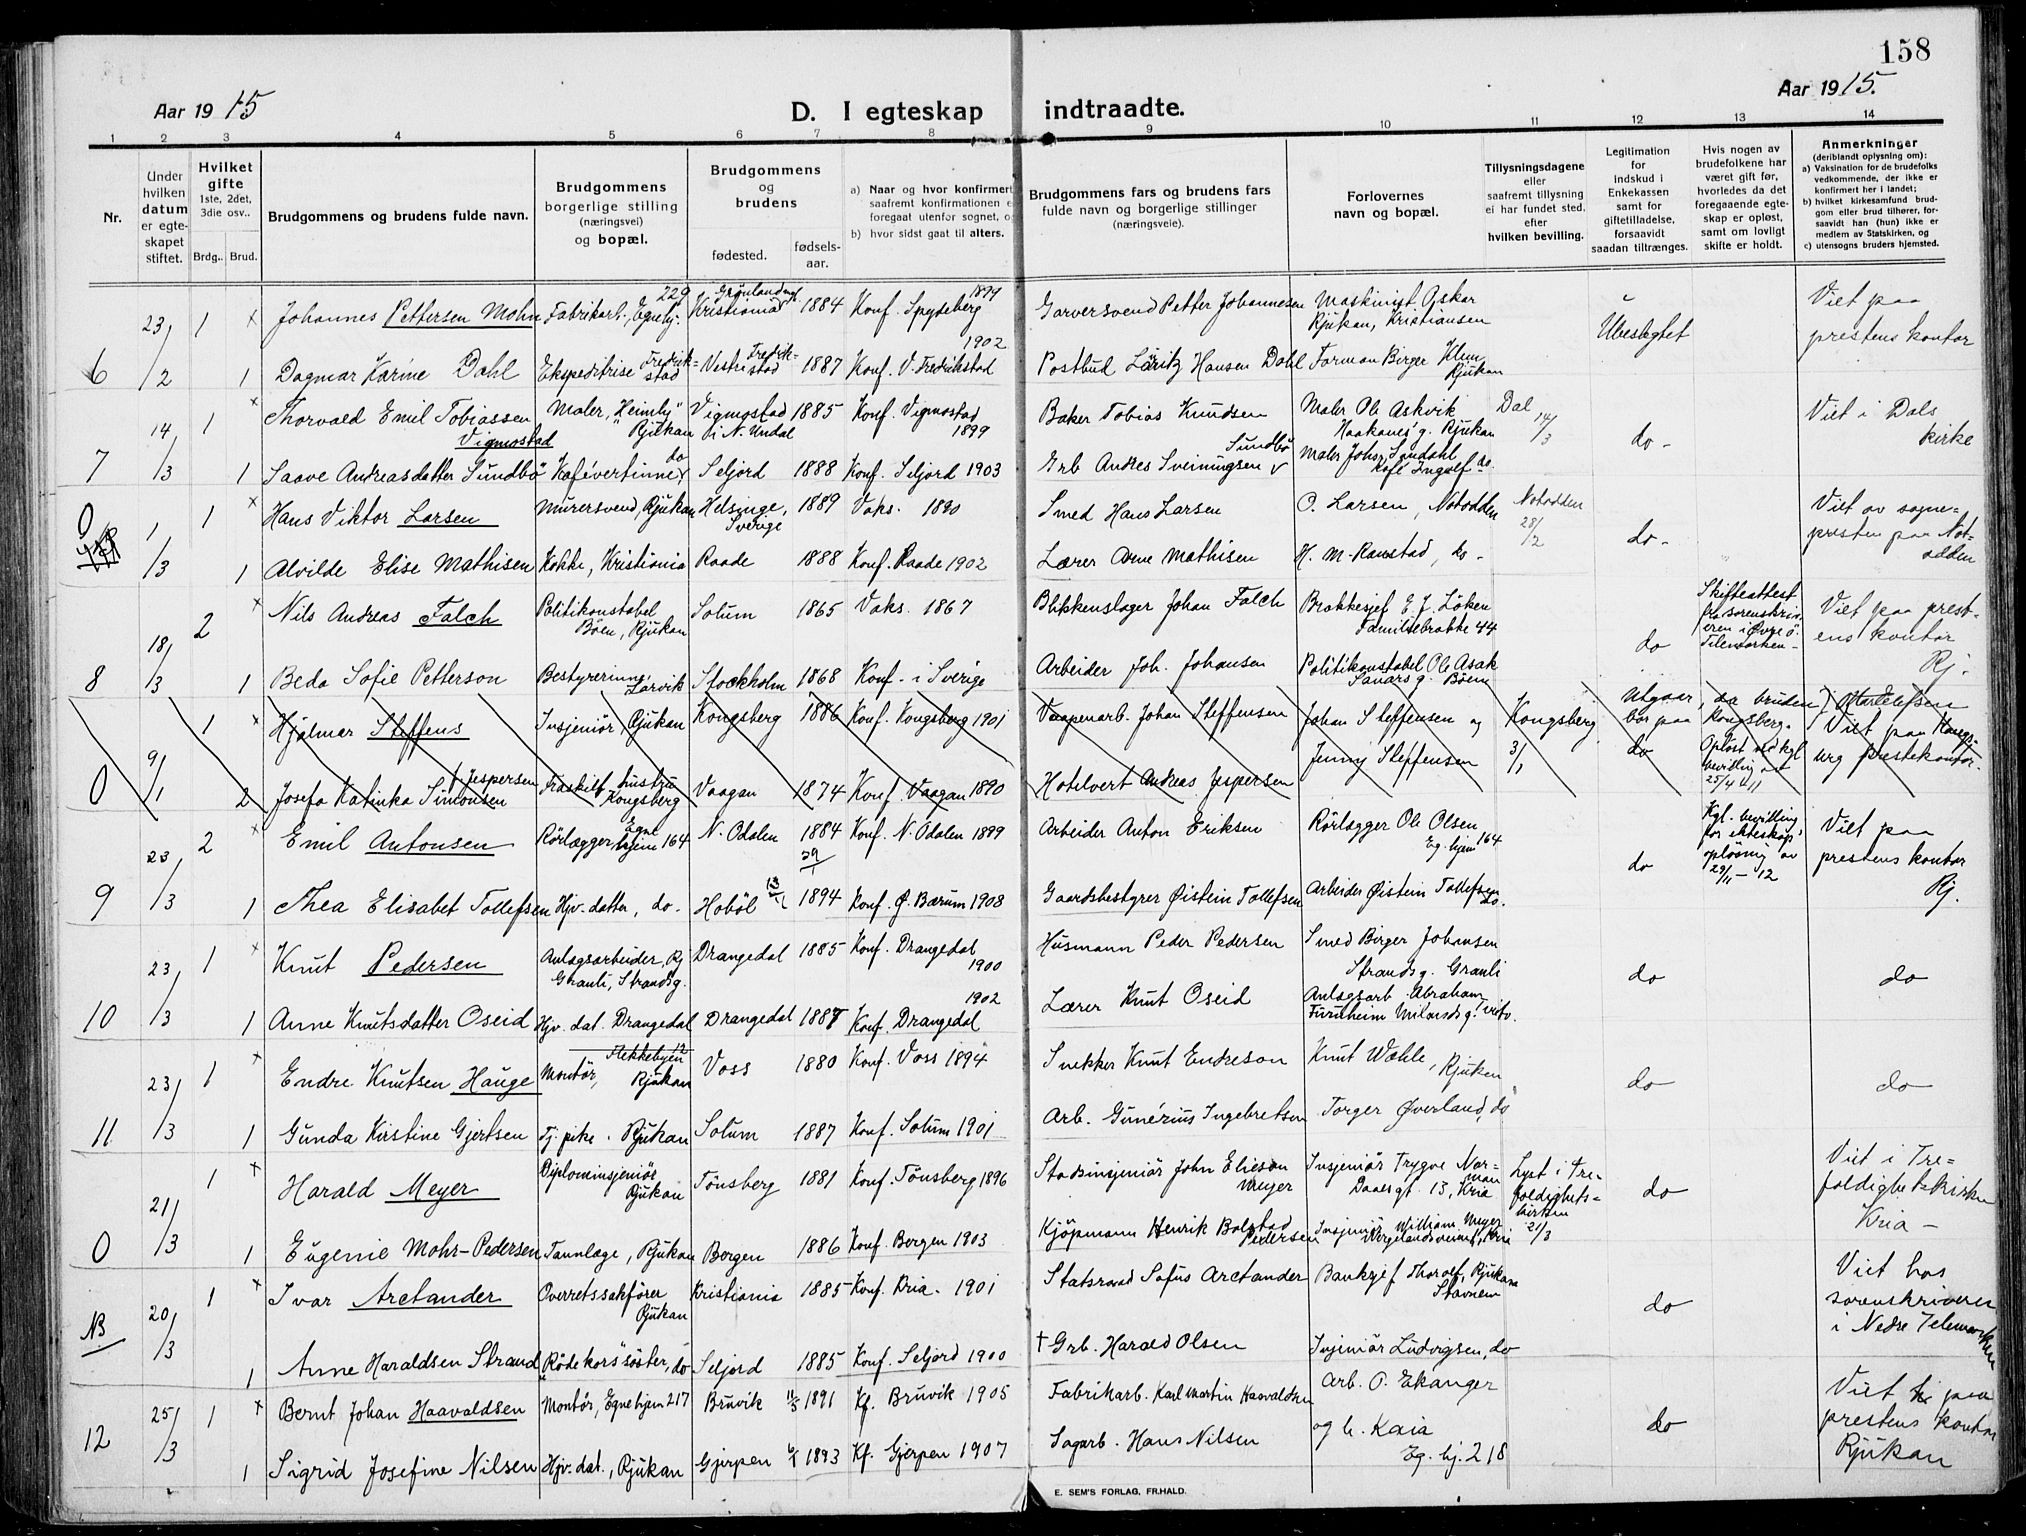 158
Aar 1915
D. I egteskap indtraadte.
Aar 1915.
1 2 3 4 5 6 7 8 9 10 11 12 13 14
Nr.
Under hvilken datum er egteskapet stiftet.
Hvilket gifte 1ste, 2det, 3die osv..
Brdg.. Brud.
Brudgommens og brudens fulde navn.
Brudgommens borgerlige stilling (næringsvei) og bopæl.
Brudgommens og brudens
fødested. fødsels-aar.
a) Naar og hvor konfirmert saafremt konfirmationen e foregaat utenfor sognet, o
b) hvor sidst gaat til alters.
Brudgommens fars og brudens fars fulde navn og borgerlige stillinger (næringsveie).
Forlovernes navn og bopæl.
Tillysningsdagene eller saafremt tillysning ei har fundet sted, efter hvilken bevilling.
Legitimation for indskud i Enkekassen samt for giftetilladelse, forsaavidt saadan tiltrænges.
Hvis nogen av brudefolkene har været gift før, hvorledes da det foregaaende egteskap er opløst, samt om lovligt skifte er holdt.
Anmerkninger (deriblandt oplysning om):
a) Vaksination for de brudefolks vedkommende, der ikke er konfirmert her i landet;
b) hvilket kirkesamfund brudgom eller brud tilhører, forsaavidt han (hun) ikke er medlem av Statskirken, og
c) utensogns bruders hjemsted.
23/2 1 x Johannes Pettersen Mohn Fabrikarb., Egnehj. 229 Grønlandsv. Kristiania 1884 Konf. Spydeberg 1899 Garversvend Petter Johannesen Maskinist Oskar Rjukan, Kristiansen Ubeslegtet Viet paa prestens kontor
6 1 Dagmar Karine Dahl Ekspeditrise Fredrikstad Vestre Fredrikstad 1887 Konf. V. Fredrikstad 1902 Postbud Lauritz Hansen Dahl Formon Birger Klem Rjukan
14/3 1 x Thorvald Emil Tobiassen Vigmostad Maler, "Heimly" Rjukan Vigmostad i N. Undal 1885 Konf. Vigmostad 1899 Baker Tobias Knudsen Maler Ole Askvik Haakanes g. Rjukan Dal 14/3 do- Viet i Dals kirke
7 1 Saave Andreasdatter Sundbö Kafévertinne do Seljord 1888 Konf. Seljord 1903 Grb Andres Sveinungsen Sundbö Maler Johs. Sendahl Kafé Ingolf do
0 1/3 1 x Hans Viktor Larsen Murersvend, Rjukan Helsinge, Sverige 1889 Vaks. 1890 Smed Hans Larsen O. Larsen, Notodden Notodden 28/2 do- Viet av sogne-presten paa Not-odden
1 Alvilde Elise Mathisen Kokke, Kristiania Raade 1888 Konf. Raade 1902 Lærer Arne Mathisen H. M. Ramstad, do-
18/3 2 x Nils Andreas Falch Politikonstabel Böen, Rjukan Solum 1865 Vaks. 1867 Blikkenslager Johan Falch Brakkesjef E. J. Löken Familiebrakke 44 do Skifteattest fra sorenskriveren i Øvre ö. Telemarken- Viet paa prestens kontor Rj.
8 1 Beda Sofie Petterson Bestyrerinne Larvik Stockholm 1868 Konf. i Sverige Arbeider Joh. Johansen Politikonstabel Ole Asak Sanars g. Böen
0 9/1 1 x Hjalmar Steffens Insjeniör, Rjukan Kongsberg 1886 Konf. Kongsberg 1901 Vaapenarb. Johan Steffensen Johan Steffensen og Jenny Steffensen Kongsberg 3/1 Utgaar, da bruden bor paa Kongsberg. do Viet paa Kongsberg prestekontor.
2 Josefa Katinka Simonsen f. Jespersen Fraskilt hustru Kongsberg Vaagan 1874 Konf. Vaagan 1890 Hotelvert Andreas Jespersen Oplöst ved kgl bevilling av 25/4 1911
23/3 2 x Emil Antonsen Rörlægger, Egne hjem 164 N. Odalen 1884 29/1 Konf. N. Odalen 1899 Arbeider Anton Eriksen Rörlægger Ole Olsen Eg. hjem 164 do Kgl. bevilling for ekteskapsoplösning av 29/11-12 Viet paa prestens kontor Rj.
9 1 Thea Elisabet Tollefsen Hjv. datter, do. Hobøl 1894 Konf. Ø. Bærum 1908 Gaardsbestyrer Øistein Tollefsen Arbeider Øistein Tollefsen do.
23/3 1 x Knut Pedersen Anlagsarbeider, Rj Granli, Strandsg. Drangedal 1885 Konf. Drangedal 1900 Husmann Peder Pedersen Smed Birger Johansen Strandsg. Granli do do
10 1 Anne Knutsdatter Oseid Hjv. dat. Drangedal Drangedal 1887 Konf. Drangedal 1902 Lærer Knut Oseid Anlagsarb. Abraham Furuheim
23/3 1 x Endre Knutsen Hauge Montör, Flekkebyen 12 Rjukan Voss 1880 Konf. Voss 1894 Snekker Knut Endreson Knut Wæhle, Rjukan do do
11 1 Gunda Kirstine Gjertsen Tj. pike. Rjukan Solum 1887 Konf. Solum 1901 Arb. Gunérius Ingebretsen Torger Överland, do
21/3 1 x Harald Meyer Diplominsjeniör Rjukan Tönsberg 1881 Konf. Tönsberg 1896 Stadsinsjeniör John Elieson Meyer Insjeniör Trygve Norman Daaesgt. 13, Kria Lyst i Trefoldighetskirken 21/3 do Viet i Trefoldighetskirken Kria-
0 1 Eugenie Mohr-Pedersen Tannlæge, Rjukan Bergen 1886 Konf. Bergen 1903 Kjöpmann Henrik Bolstad Pedersen Insjeniör William Meyer Vergelandsveien, Kria
NB 20/3 1 x Ivar Arctander Overretssakförer Rjukan Kristiania 1885 Konf. Kria. 1901 Statsraad Sofus Arctander Banksjef Thorolf Stavnem, Rjukan do Viet hos sorenskriveren i Nedre Telemarken
1 Anne Haraldsen Strand "Röde kors" söster, do Seljord 1885 Konf. Seljord 1900 † Grb. Harald Olsen Insjeniör Ludvigsen, do
25/3 1 x Bernt Johan Haavaldsen Montör, Egnehjem 217 Bruvik 11/5 1891 Kf. Bruvik 1905 Fabrikarb. Karl Martin Haavaldsen Arb. O. Ekanger do Viet paa prestens kontor Rjukan
12 1 Sigrid Josefine Nilsen Hjv. dat., Rjukan Gjerpen 1893 Kf. Gjerpen 1907 Sagarb. Hans Nilsen og h. Kaia Eg. hj. 218
E. SEM'S FORLAG, FR.HALD.